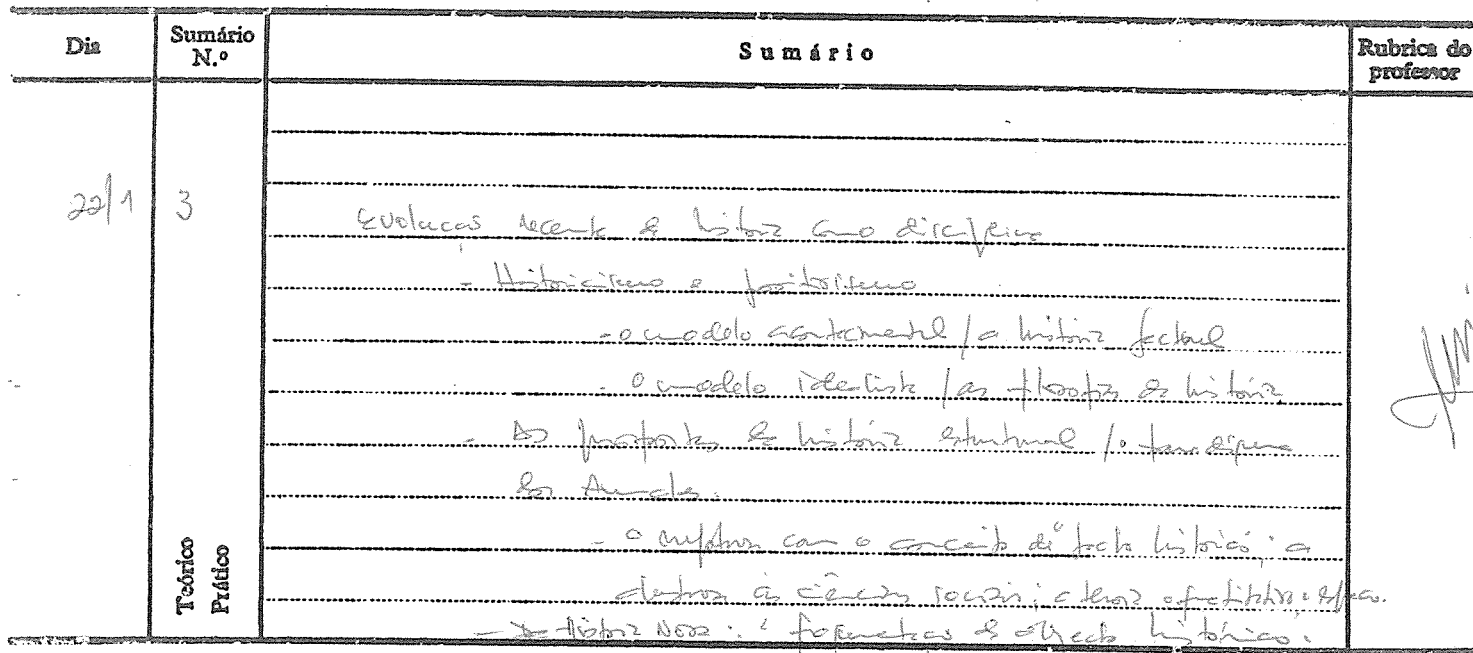 Dia
Sumário N.º
Sumário
Rubrica do professor
22/1
3
Evolução recente da história como disciplina
- Historicismo e positivismo
- o modelo acontecimental / a história factual
- o modelo idealista / as filosofias da história
- As propostas da história estrutural / o paradigma
dos Annales.
- a ruptura com o conceito de "facto histórico"; a
abertura às ciências sociais; a
- Da História Nova: à fragmentação do objecto histórico.
Teórico
Prático